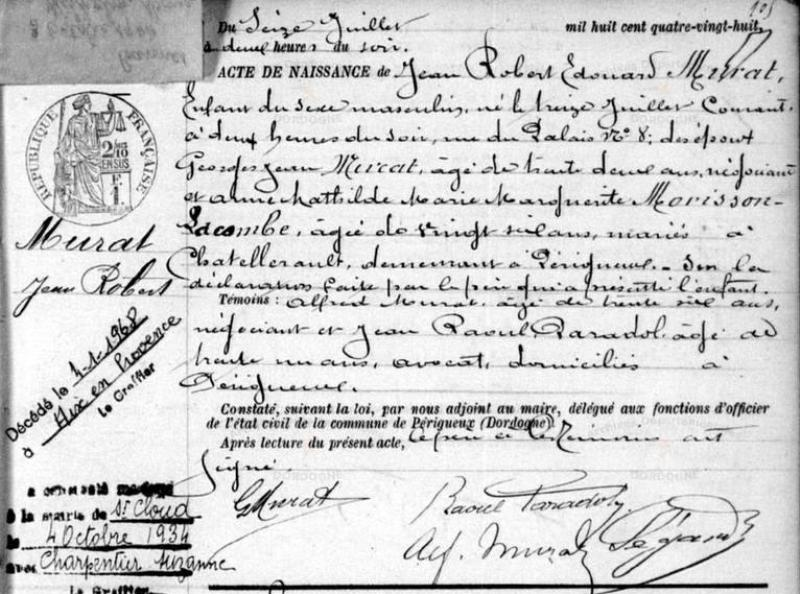 105
Du Seize Juillet mil huit cent quatre-vingt-huit,
à deux heures du soir.
ACTE DE NAISSANCE de Jean Robert Edouard Murat,
Enfant du sexe masculin, né le treize Juillet Courant,
à deux heures du soir, rue du Palais N° 8; des époux
Georges Jean Murat, âgé de trente deux ans, négociant
et Anne Mathilde Marie Marguerite Morisson-
Lacombe, âgée de vingt six ans, mariés à
Chatellerault, demeurant à Périgueux. - Sur la
déclaration faite par le père qui a présenté l'enfant.
Témoins : Alfred Murat, âgé de trente six ans,
négociant et Jean Raoul Paradol, âgé de
trente un ans, avocat, domiciliés à
Périgueux.
Constaté, suivant la loi, par nous adjoint au maire, délégué aux fonctions d'officier
de l'état civil de la commune de Périgueux (Dordogne)
Après lecture du présent acte, le père et les témoins ont
signé.
GMurat
Raoul Paradol
Alf. Murat
RÉPUBLIQUE FRANÇAISE
2/10
EN SUS
Murat
Jean Robert
Décédé le 4-1-1968
à Aix en Provence
Le Greffier
a contracté mariage
à la mairie de St Cloud
le 4 Octobre 1934
avec Charpentier Suzanne
Le Greffier